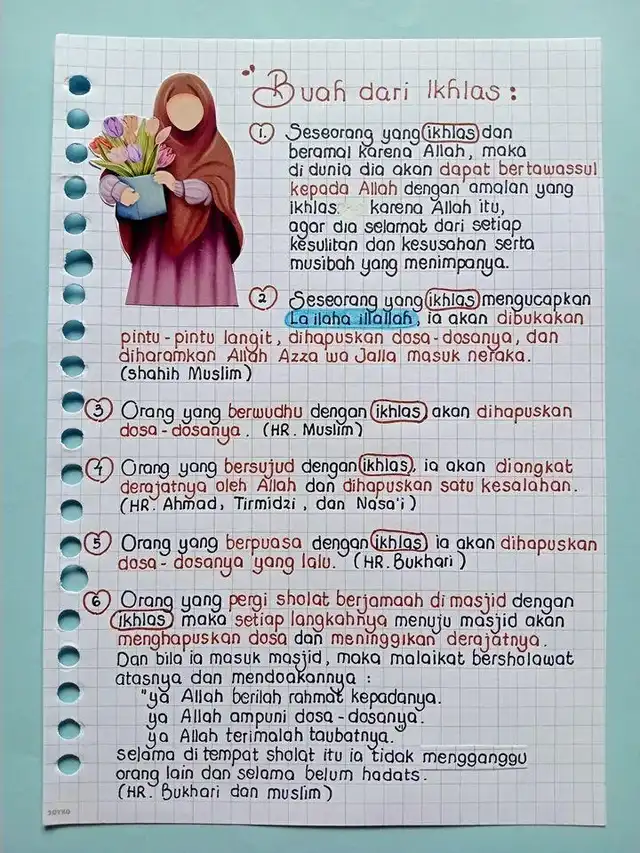 Buah dari Ikhlas :
1. Seseorang yang ikhlas dan
beramal karena Allah, maka
di dunia dia akan dapat bertawassul
kepada Allah dengan amalan yang
ikhlas karena Allah itu,
agar dia selamat dari setiap
kesulitan dan kesusahan serta
musibah yang menimpanya.
2 Seseorang yang ikhlas mengucapkan
La ilaha illallah, ia akan dibukakan
pintu-pintu langit, dihapuskan dosa-dosanya, dan
diharamkan Allah Azza wa Jalla masuk neraka.
(shahih Muslim)
3 Orang yang berwudhu dengan ikhlas akan dihapuskan
dosa-dosanya. (HR. Muslim)
4 Orang yang bersujud dengan ikhlas, ia akan diangkat
derajatnya oleh Allah dan dihapuskan satu kesalahan.
(HR. Ahmad, Tirmidzi, dan Nasa'i)
5 Orang yang berpuasa dengan ikhlas ia akan dihapuskan
dosa-dosanya yang lalu. (HR. Bukhari)
6 Orang yang pergi sholat berjamaah di masjid dengan
ikhlas maka setiap langkahnya menuju masjid akan
menghapuskan dosa dan meninggikan derajatnya.
Dan bila ia masuk masjid, maka malaikat bersholawat
atasnya dan mendoakannya :
"ya Allah berilah rahmat kepadanya.
ya Allah ampuni dosa-dosanya.
ya Allah terimalah taubatnya."
selama di tempat sholat itu ia tidak mengganggu
orang lain dan selama belum hadats.
(HR. Bukhari dan muslim)
JOYKO